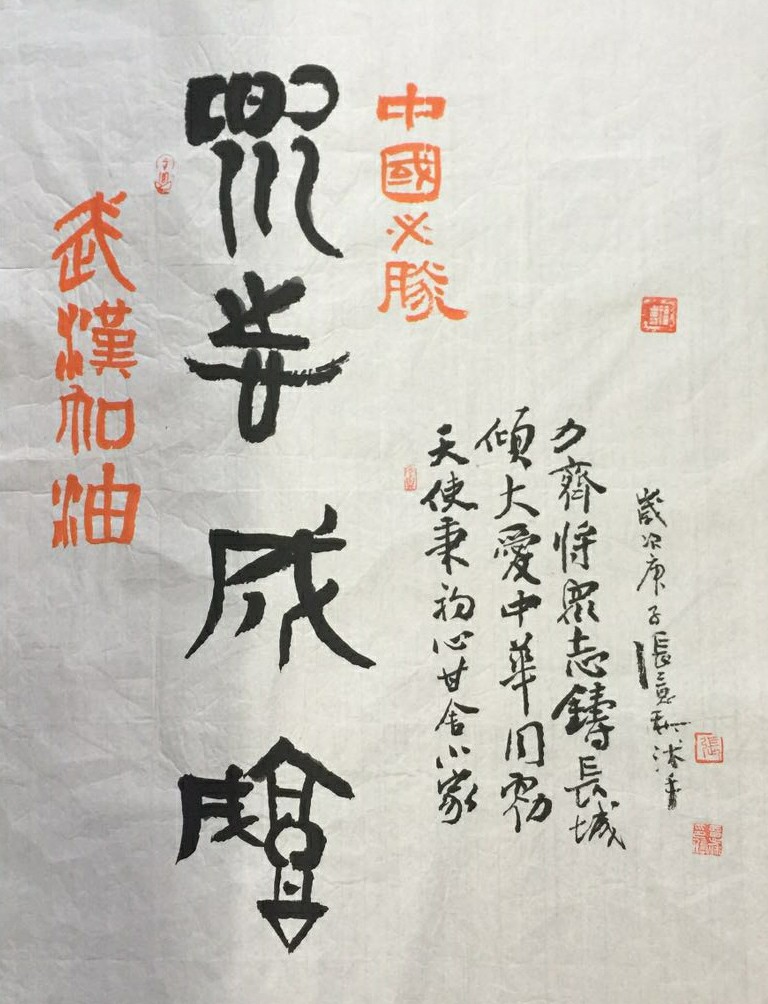 武漢加油
眾志成城
中國必勝
天使秉初心甘舍小家
傾大愛中華同勠
力齊將眾志鑄長城
歲次庚子張意沐手
張